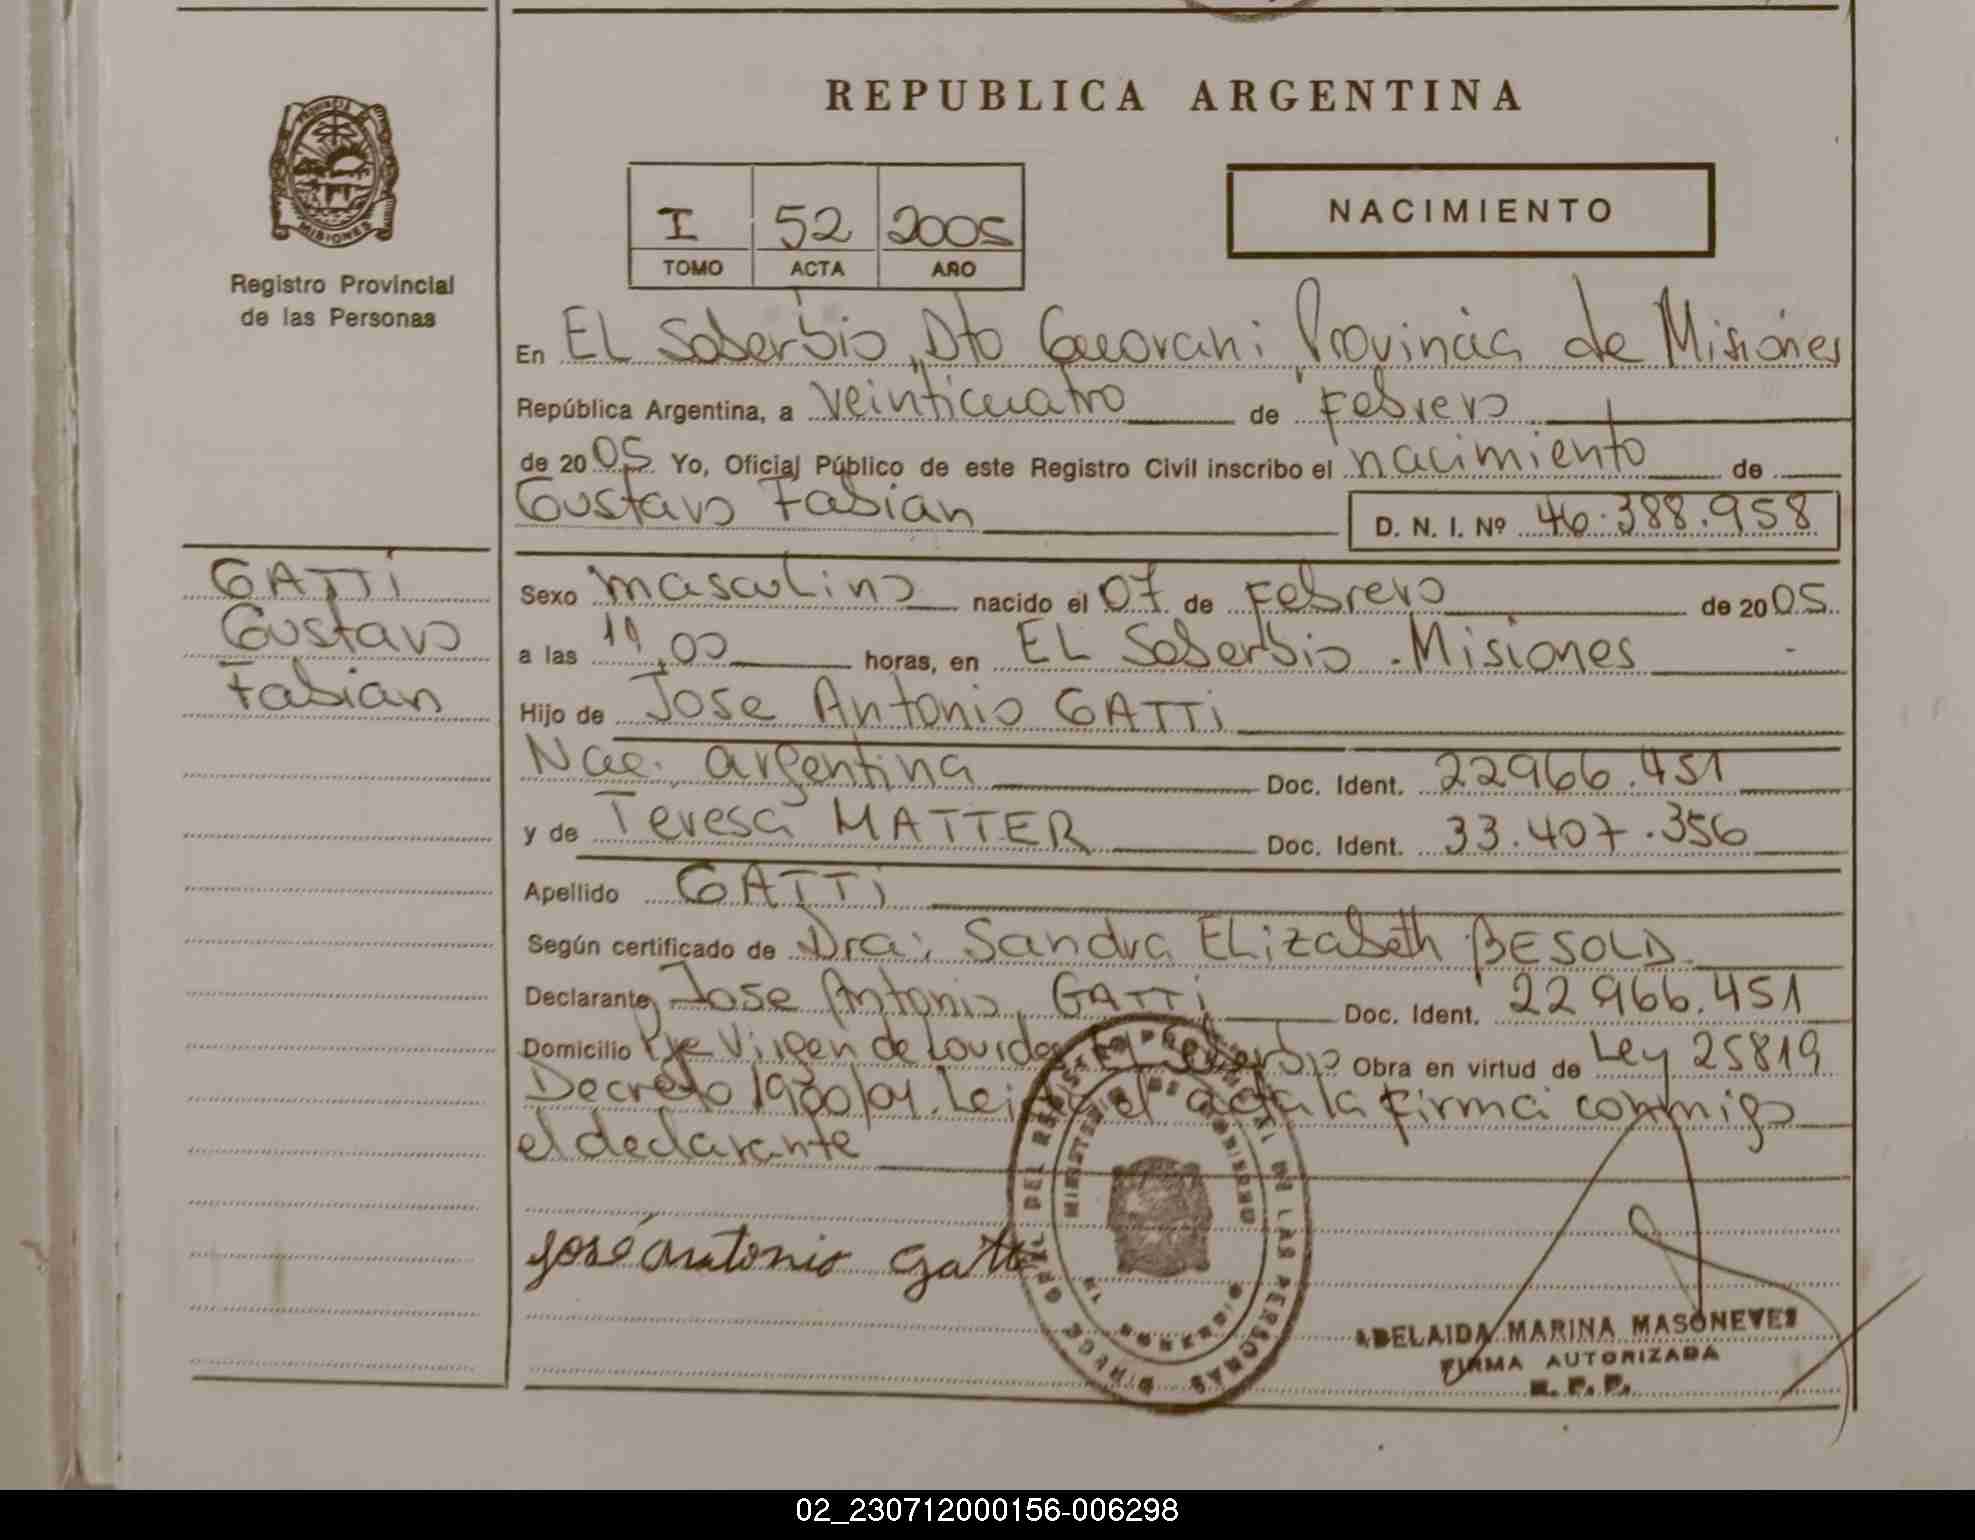 REPUBLICA ARGENTINA
PROVINCIA
MISIONES
Registro Provincial
de las Personas
I 52 2005
TOMO ACTA AÑO
NACIMIENTO
En EL Soberbio, Dto Guarani Provincia de Misiones
República Argentina, a veinticuatro de Febrero
de 2005 Yo, Oficial Público de este Registro Civil inscribo el nacimiento de
Gustavo Fabian D. N. I. Nº 46.388.958
GATTi
Gustavo
Fabian
Sexo masculino nacido el 07 de Febrero de 2005
a las horas, en EL Soberbio - Misiones
Hijo de Jose Antonio GATTi
Nac. argentina Doc. Ident. 22966.451
y de Teresa MATTER Doc. Ident. 33.407.356
Apellido GATTi
Según certificado de Dra: Sandra ELizabeth BESOLD
Declarante Jose Antonio GATTi Doc. Ident. 22966.451
Domicilio Pje Virgen de Lourdes El Soberbio Obra en virtud de Ley 25819
Decreto Leida el acta la firma conmigo
el declarante
José Antonio Gatti
ADELAIDA MARINA MASONEVES
FIRMA AUTORIZADA
R. P. P.
02_230712000156-006298